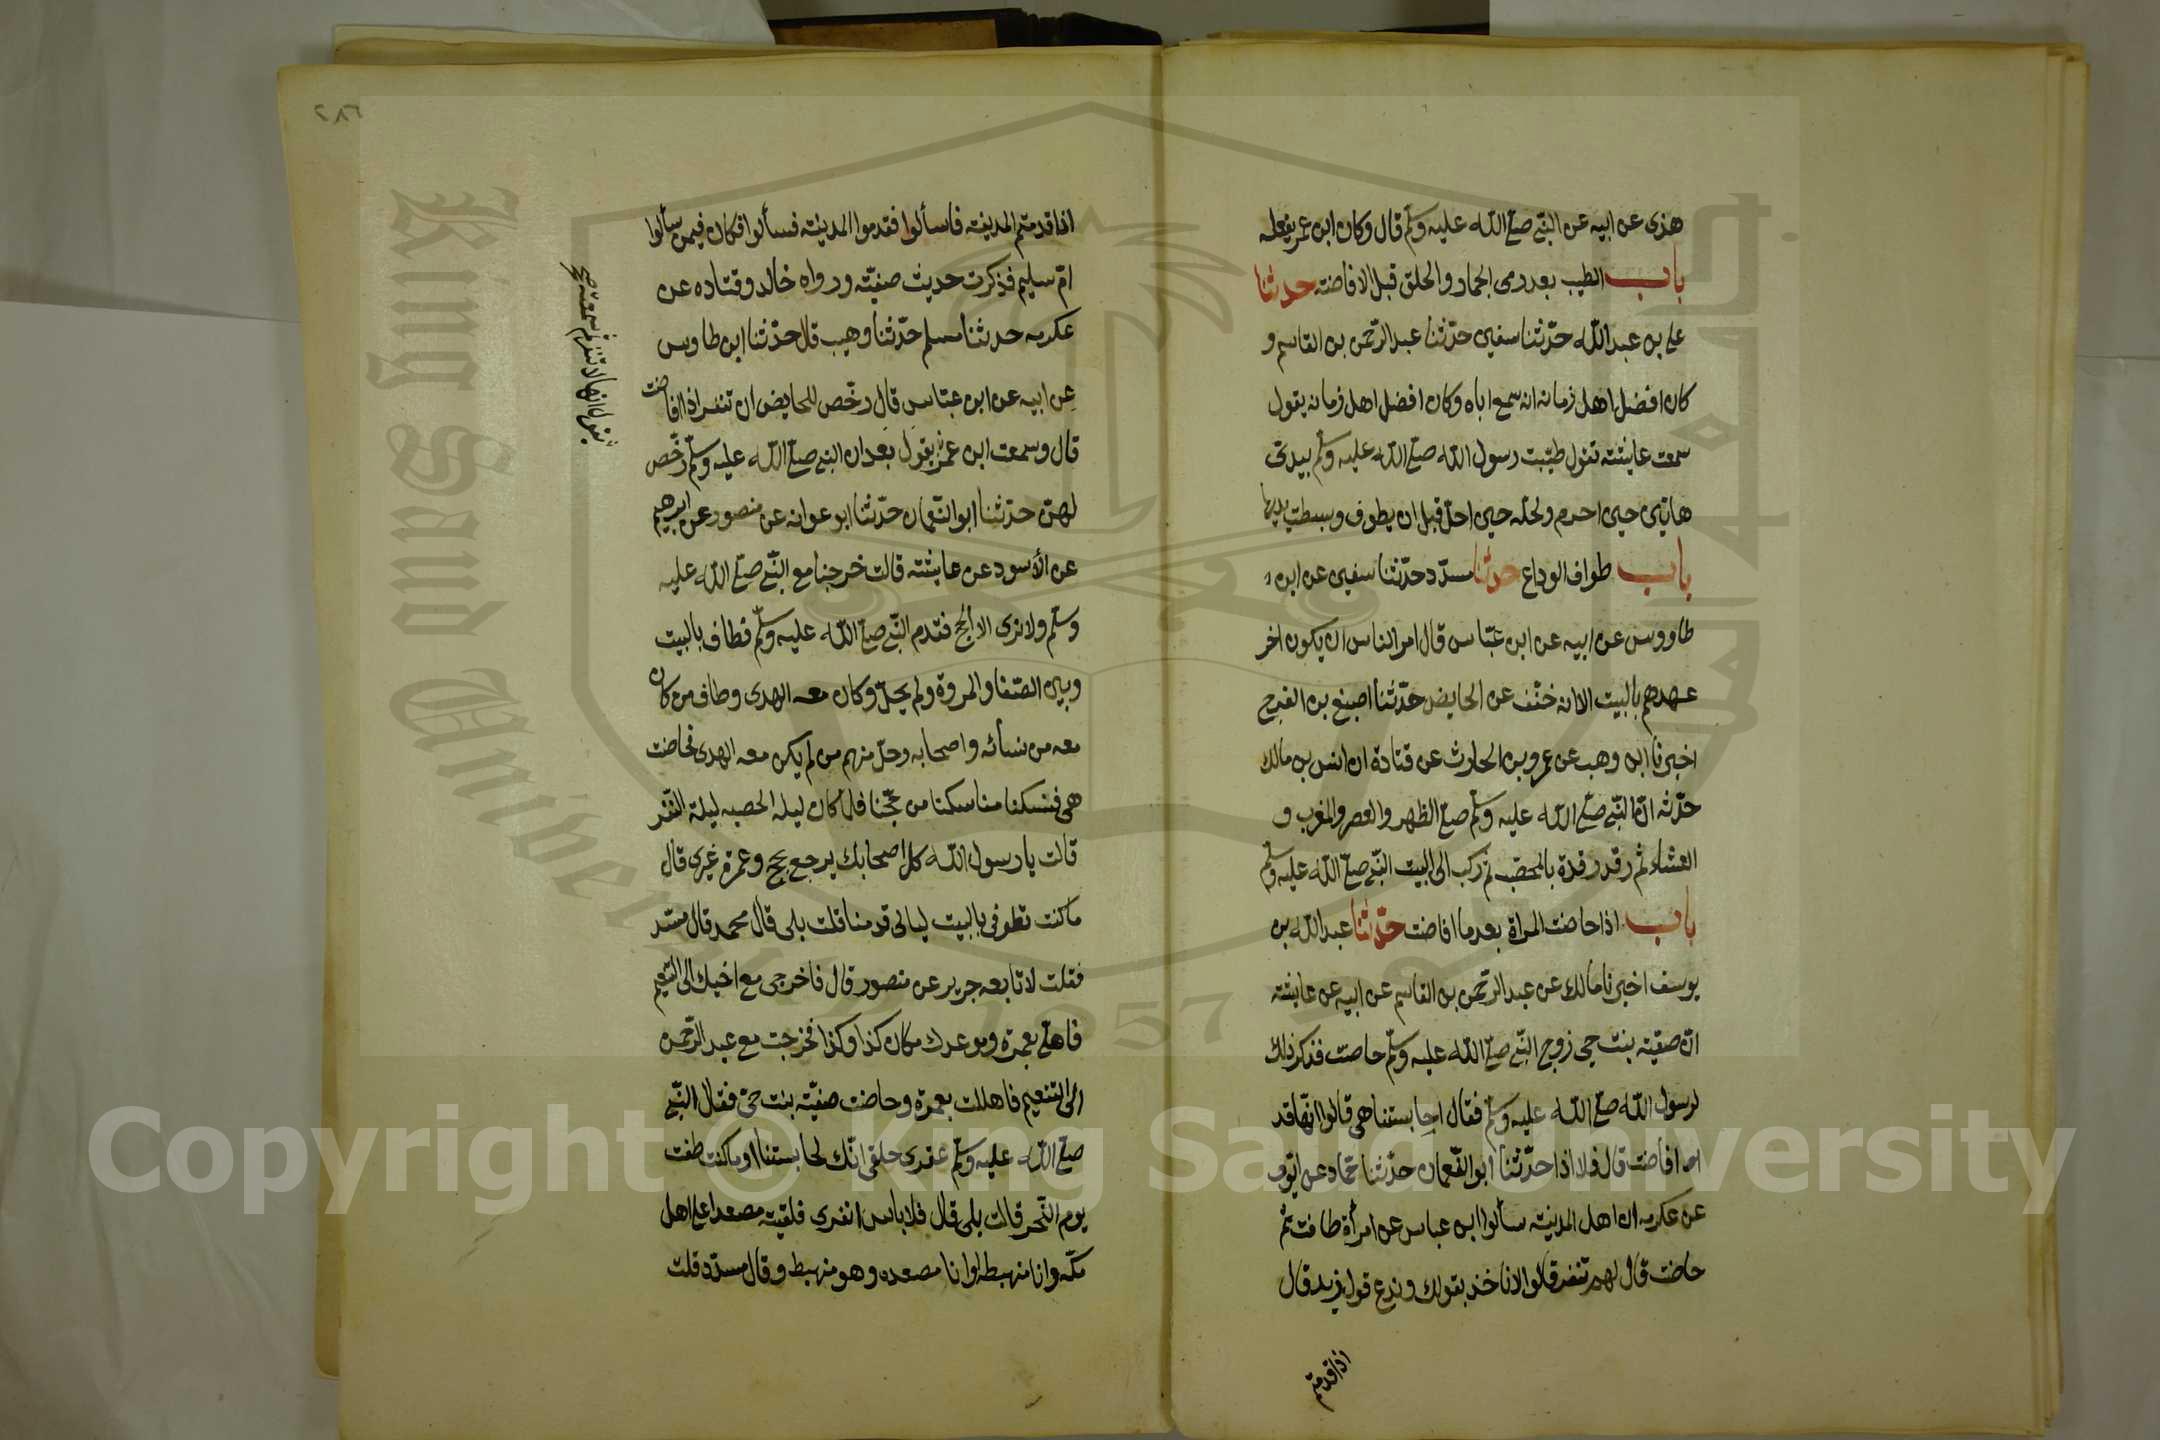 هذى عن ابيه عن النبى صلى الله عليه وسلم قال وكان ابن عمر يفعله
باب الطيب بعد رمى الجمار والحلق قبل الافاضة حدثنا
على بن عبد الله حدثنا سفين حدثنا عبد الرحمن بن القاسم و
كان افضل اهل زمانه انه سمع اباه وكان افضل اهل زمانه يقول
سمعت عايشة تقول طيبت رسول الله صلى الله عليه وسلم بيدى
هاتين حين احرم ولحله حين احل قبل ان يطوف وبسطت يديها
باب طواف الوداع حدثنا مسدد حدثنا سفين عن ابن
طاووس عن ابيه عن ابن عباس قال امر الناس ان يكون اخر
عهدهم بالبيت الا انه خفف عن الحايض حدثنا اصبغ بن الفرج
اخبرنا ابن وهب عن عمرو بن الحارث عن قتادة ان انس بن مالك
حدثه ان النبى صلى الله عليه وسلم صلى الظهر والعصر والمغرب و
العشاء ثم رقد رقدة بالمحصب ثم ركب الى البيت النبى صلى الله عليه وسلم
باب اذا حاضت المراة بعد ما افاضت حدثنا عبد الله بن
يوسف اخبرنا مالك عن عبد الرحمن بن القاسم عن ابيه عن عايشة
ان صفية بنت حيى زوج النبى صلى الله عليه وسلم حاضت فذكر ذلك
لرسول الله صلى الله عليه وسلم فقال احابستنا هى قالوا انها قد
افاضت قال فلا اذا حدثنا ابو النعمان حدثنا حماد عن ايوب
عن عكرمه ان اهل المدينة سألوا ابن عباس عن امرأة طافت ثم
حاضت قال لهم تنفر قالوا لا ناخذ بقولك وندع قول زيد قال
اذا قدمتم
٢٨٦
اذا قدمتم المدينة فاسألوا فقدموا المدينة فسألوا فكان فيمن سألوا
ام سليم فذكرت حديث صفية ورواه خالد وقتاده عن
عكرمه حدثنا مسلم حدثنا وهيب قال حدثنا ابن طاوس
عن ابيه عن ابن عباس قال رخص للحايض ان تنفر اذا افاضت
قال وسمعت ابن عمر يقول بعد ان النبى صلى الله عليه وسلم رخص
لهن حدثنا ابو النعمان حدثنا ابو عوانه عن منصور عن ابرهيم
عن الأسود عن عايشة قالت خرجنا مع النبى صلى الله عليه
وسلم ولا نرى الا الحج فقدم النبى صلى الله عليه وسلم فطاف بالبيت
وبين الصفا والمروة ولم يحل وكان معه الهدى وطاف من كان
معه من نسائه واصحابه وحل منهم من لم يكن معه الهدى فحاضت
هى فنسكنا مناسكنا من حجنا فلما كان ليله الحصبه ليلة النفر
قالت يا رسول الله كل اصحابك يرجع بحج وعمرة غيرى قال
ما كنت تطوفى بالبيت ليالى قدمنا قلت بلى قال محمد قال مسدد
فقلت لا تابعه جرير عن منصور قال فاخرجى مع اخيك الى التنعيم
فاهلى بعمرة وموعدك مكان كذا وكذا فخرجت مع عبد الرحمن
الى التنعيم فاهللت بعمرة وحاضت صفية بنت حيى فقال النبى
صلى الله عليه وسلم عقرى حلقى انك لحابستنا اوما كنت طفت
يوم النحر قالت بلى قال فلا باس انفرى فلقيته مصعدا على اهل
مكه وانا منهبطه او انا مصعده وهو منهبط وقال مسدد قلت
يقول انها لا تنفر ثم سمعته صح
King Saud University
1957
Copyright © King Saud University